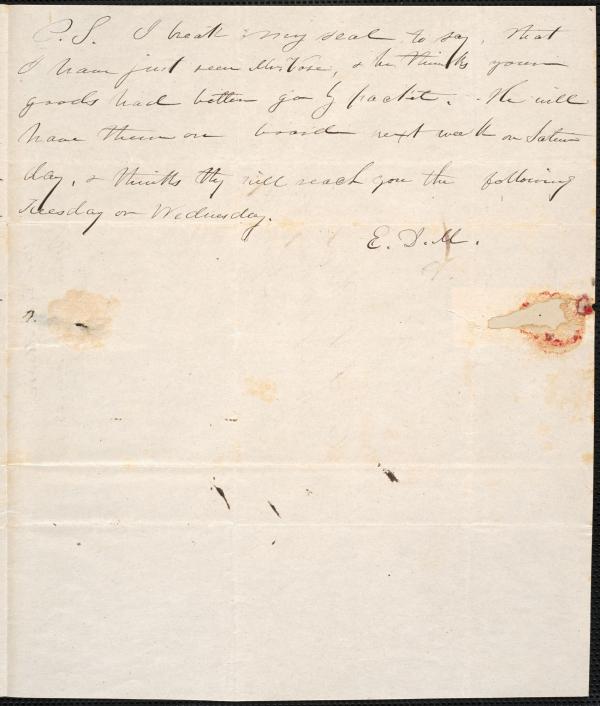 P.S. I break my seal to say, that
I have just seen Mr. Vose, & he thinks your
goods had better go by packet. He will
have them on board next week on Satur
day, & thinks they will reach you the following
Tuesday or Wednesday.
E. D. M.